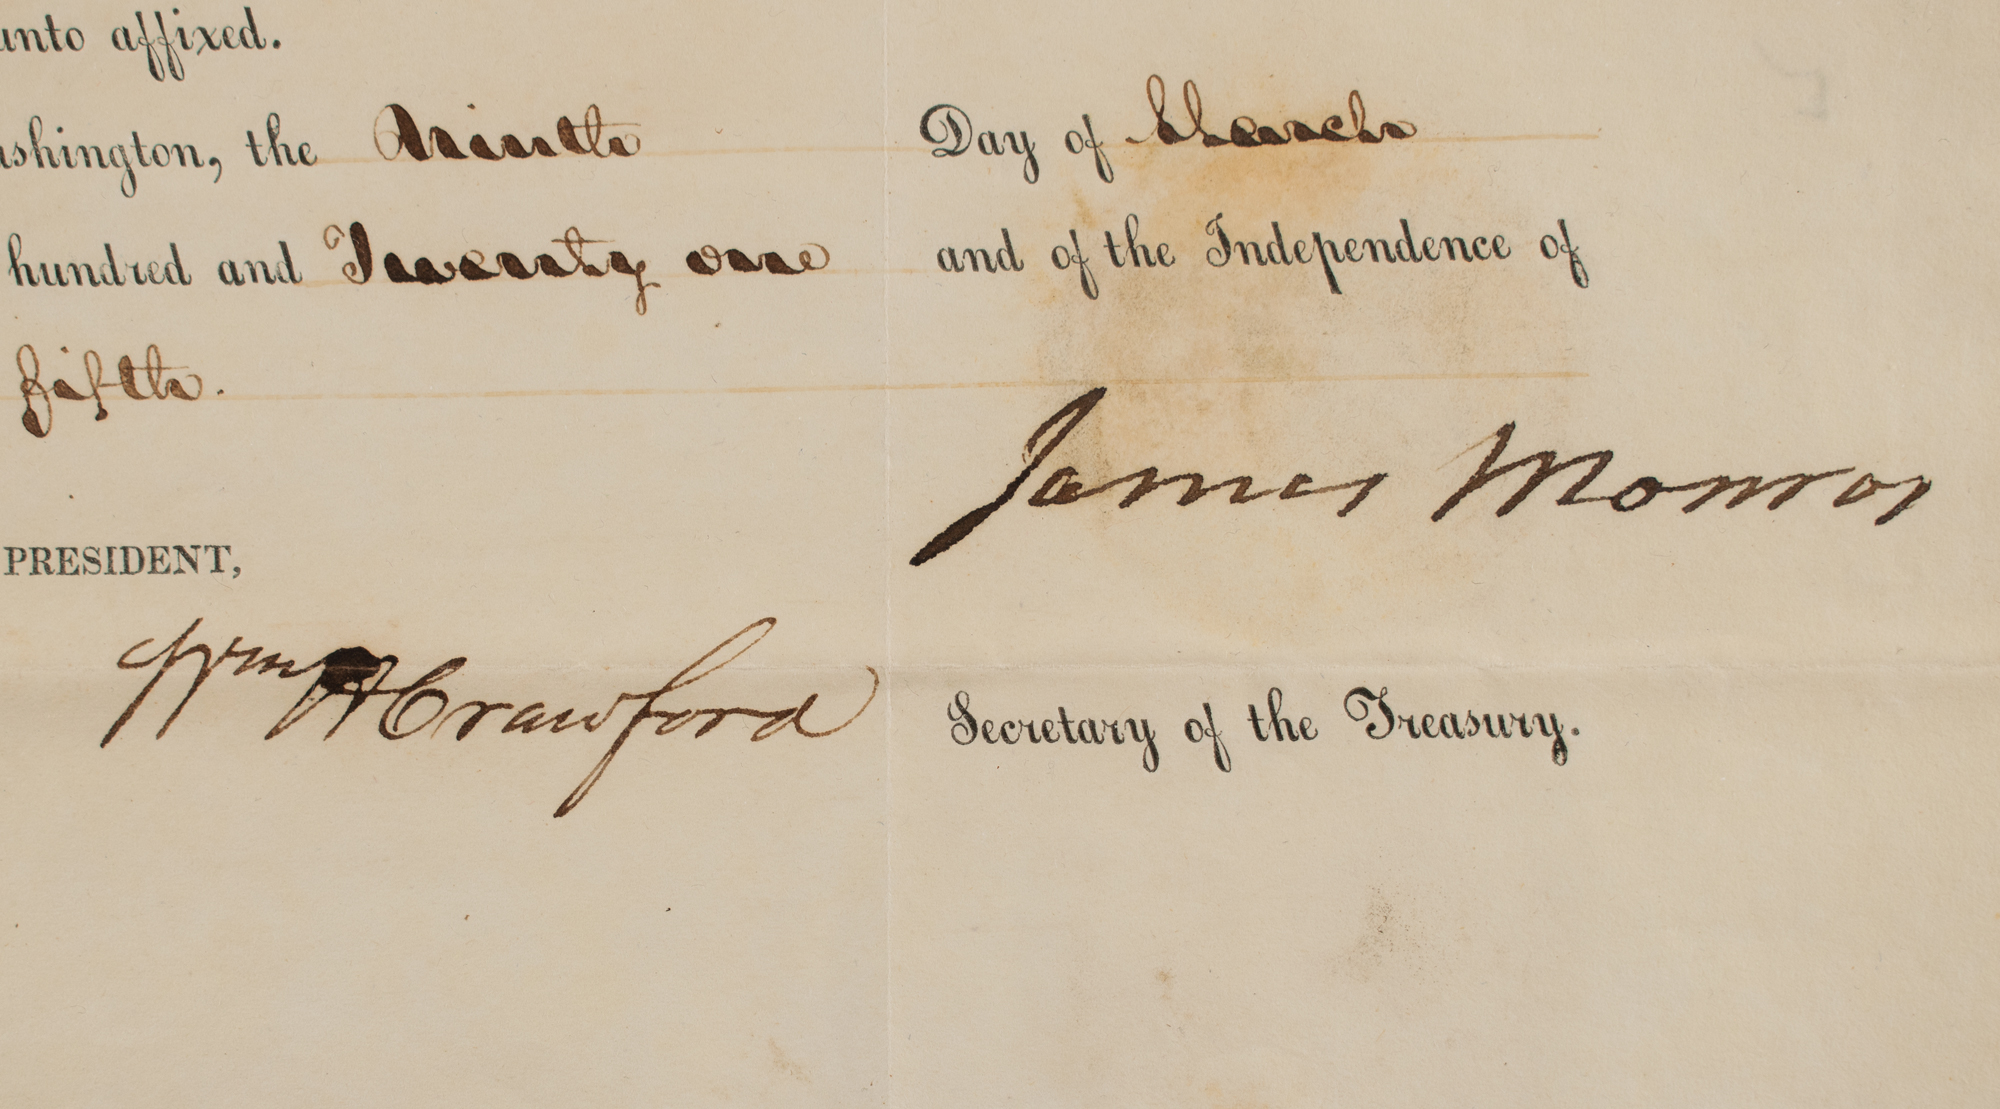 unto affixed.
ashington, the Ninth Day of March
hundred and Twenty one and of the Independence of
fifth.
James Monroe
PRESIDENT,
Wm H Crawford Secretary of the Treasury.